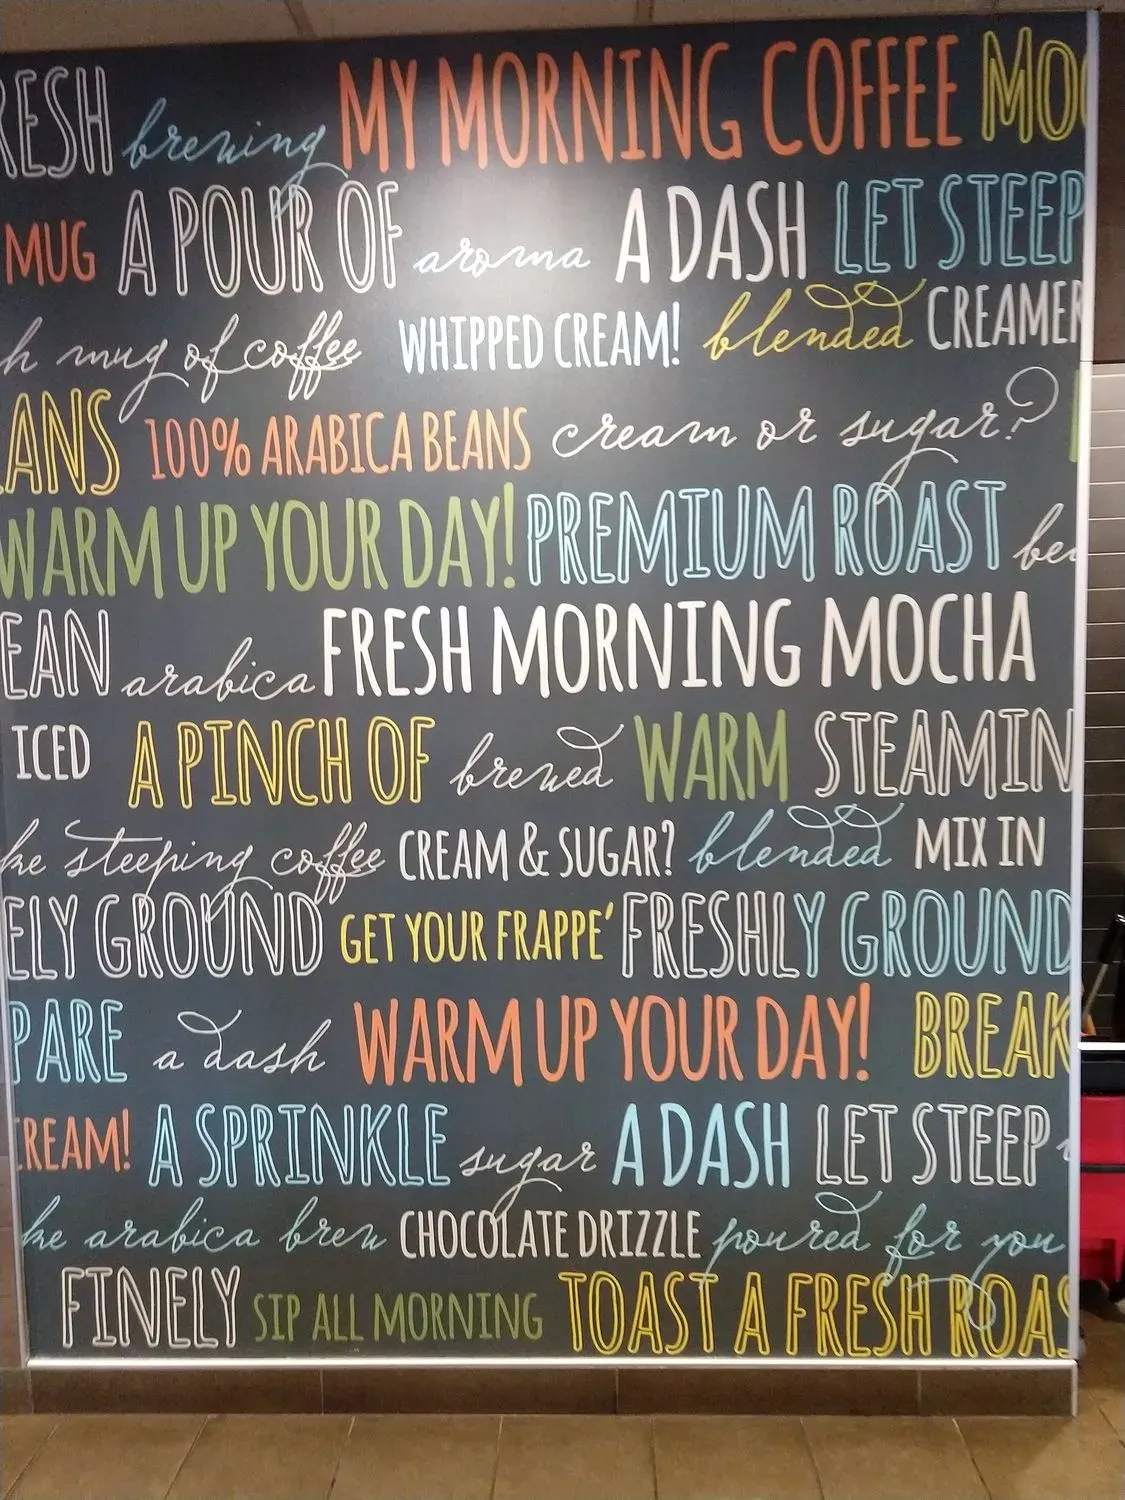 RESH brewing MY MORNING COFFEE MOC
MUG A POUR OF aroma A DASH LET STEEP
h mug of coffee WHIPPED CREAM! blended CREAMER
EANS 100% ARABICA BEANS cream or sugar?
WARM UP YOUR DAY! PREMIUM ROAST be
EAN arabica FRESH MORNING MOCHA
ICED A PINCH OF brewed WARM STEAMIN
ke steeping coffee CREAM & SUGAR? blended MIX IN
ELY GROUND GET YOUR FRAPPE' FRESHLY GROUND
PARE a dash WARM UP YOUR DAY! BREAK
CREAM! A SPRINKLE sugar A DASH LET STEEP
ke arabica brew CHOCOLATE DRIZZLE poured for you
FINELY SIP ALL MORNING TOAST A FRESH ROAS